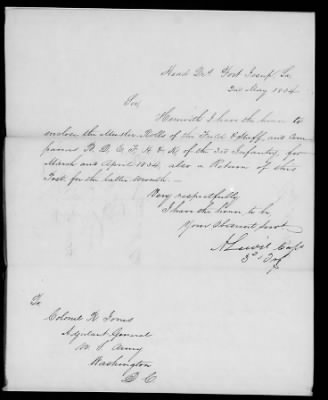 Head Qrs Fort Jesup La
2nd May 1834
Sir,
Herewith I have the honor to
enclose the Muster Rolls of the Field & Staff, and Com
panies B. D. E. F. H. & K. of the 3rd Infantry, for
March and April 1834, also a Return of this
Post for the latter month —
Very respectfully
I have the honor to be
Your Obedient Servt
Lewis Capt
3d Inf
To
Colonel R Jones
Adjutant General
U S Army
Washington
D C